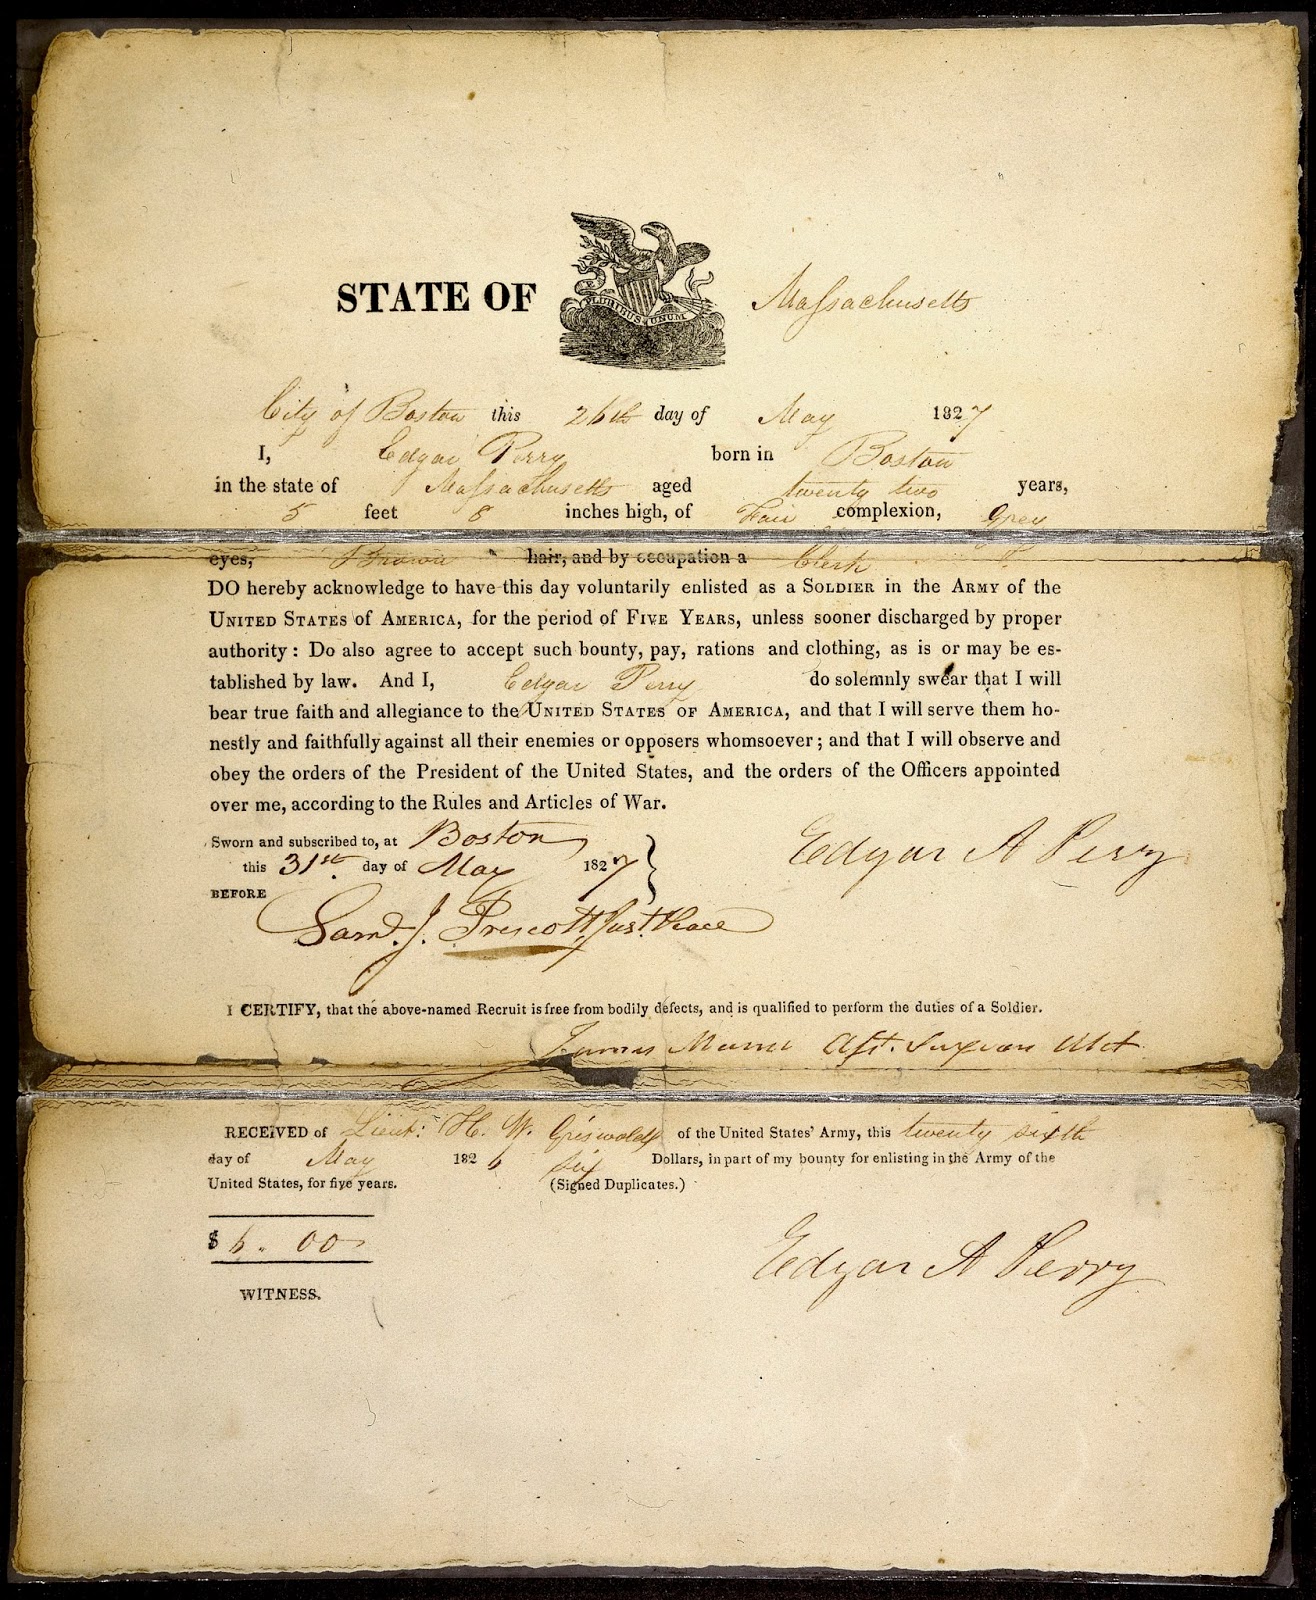 STATE OF Massachusetts
E PLURIBUS UNUM
City of Boston this 26th day of May 1827
I, Edgar Perry born in Boston
in the state of Massachusetts aged twenty two years,
5 feet 8 inches high, of Fair complexion, Grey
eyes, Brown hair, and by occupation a Clerk
DO hereby acknowledge to have this day voluntarily enlisted as a SOLDIER in the ARMY of the
UNITED STATES of AMERICA, for the period of FIVE YEARS, unless sooner discharged by proper
authority: Do also agree to accept such bounty, pay, rations and clothing, as is or may be es-
tablished by law. And I, Edgar Perry do solemnly swear that I will
bear true faith and allegiance to the UNITED STATES OF AMERICA, and that I will serve them ho-
nestly and faithfully against all their enemies or opposers whomsoever; and that I will observe and
obey the orders of the President of the United States, and the orders of the Officers appointed
over me, according to the Rules and Articles of War.
Sworn and subscribed to, at Boston
this 31st. day of May 1827
Edgar A Perry
BEFORE
Saml. J. Prescott Just. Peace
I CERTIFY, that the above-named Recruit is free from bodily defects, and is qualified to perform the duties of a Soldier.
James Mann
RECEIVED of Lieut: H. W. Griswold of the United States' Army, this twenty sixth
day of May 1826 six Dollars, in part of my bounty for enlisting in the Army of the
United States, for five years. (Signed Duplicates.)
$ 6. 00
Edgar A Perry
WITNESS.